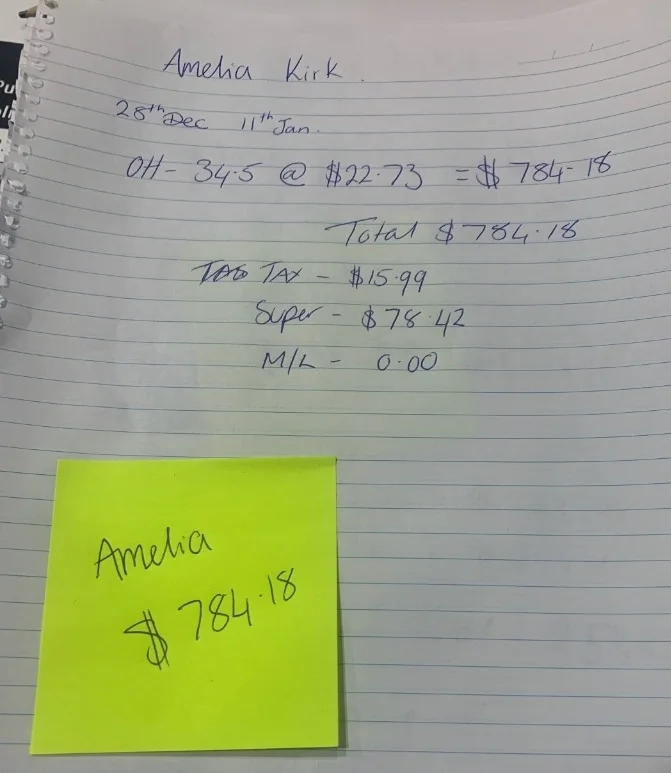 Amelia Kirk.
28th Dec 11th Jan.
OH- 34.5 @ $22.73 = $ 784-18
Total $784.18
TAX - $15.99
Super - $78.42
M/L - 0.00
Amelia
$784.18